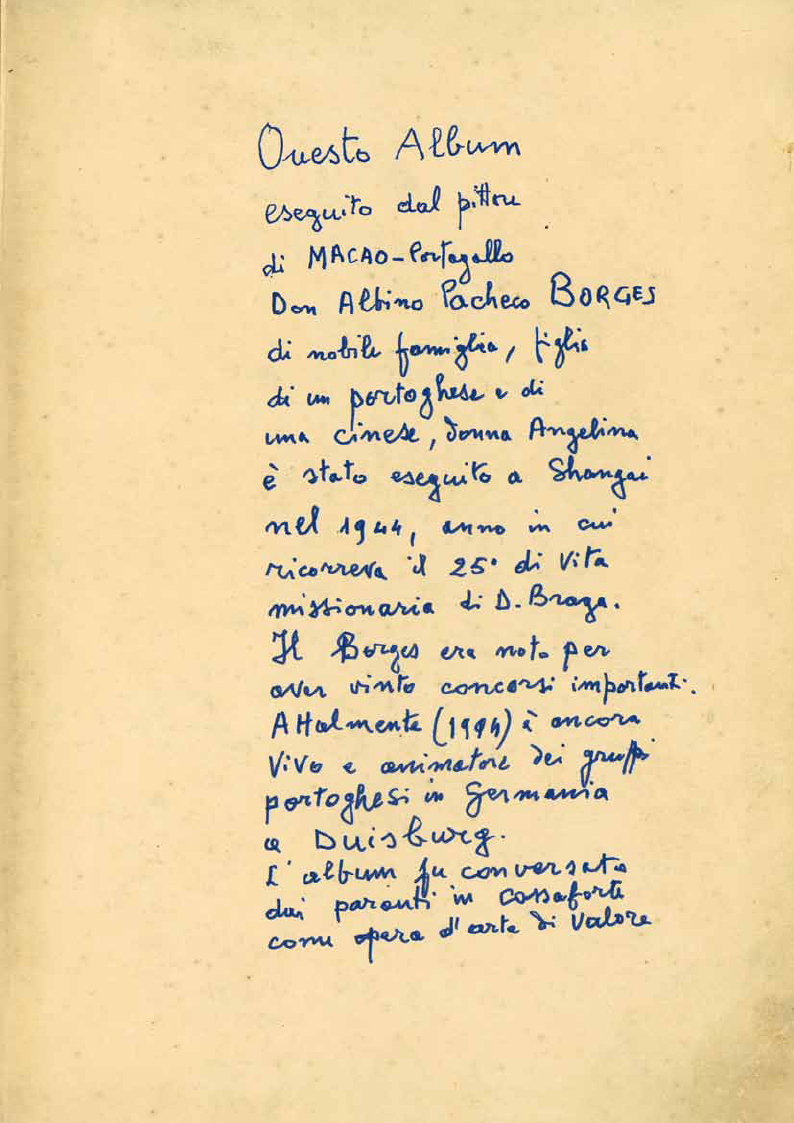 Questo Album
eseguito dal pittore
di MACAO-Portogallo
Don Albino Pacheco BORGES
di nobile famiglia, figlio
di un portoghese e di
una cinese, donna Angelina
è stato eseguito a Shangai
nel 1944, anno in cui
ricorreva il 25° di Vita
missionaria di D. Braga.
Il Borges era noto per
aver vinto concorsi importanti.
Attalmente (1994) è ancora
Vivo e animatore dei gruppi
portoghesi in Germania
a Duisburg.
L'album fu conversato
dai parenti in cassaforte
come opera d'arte di Valore